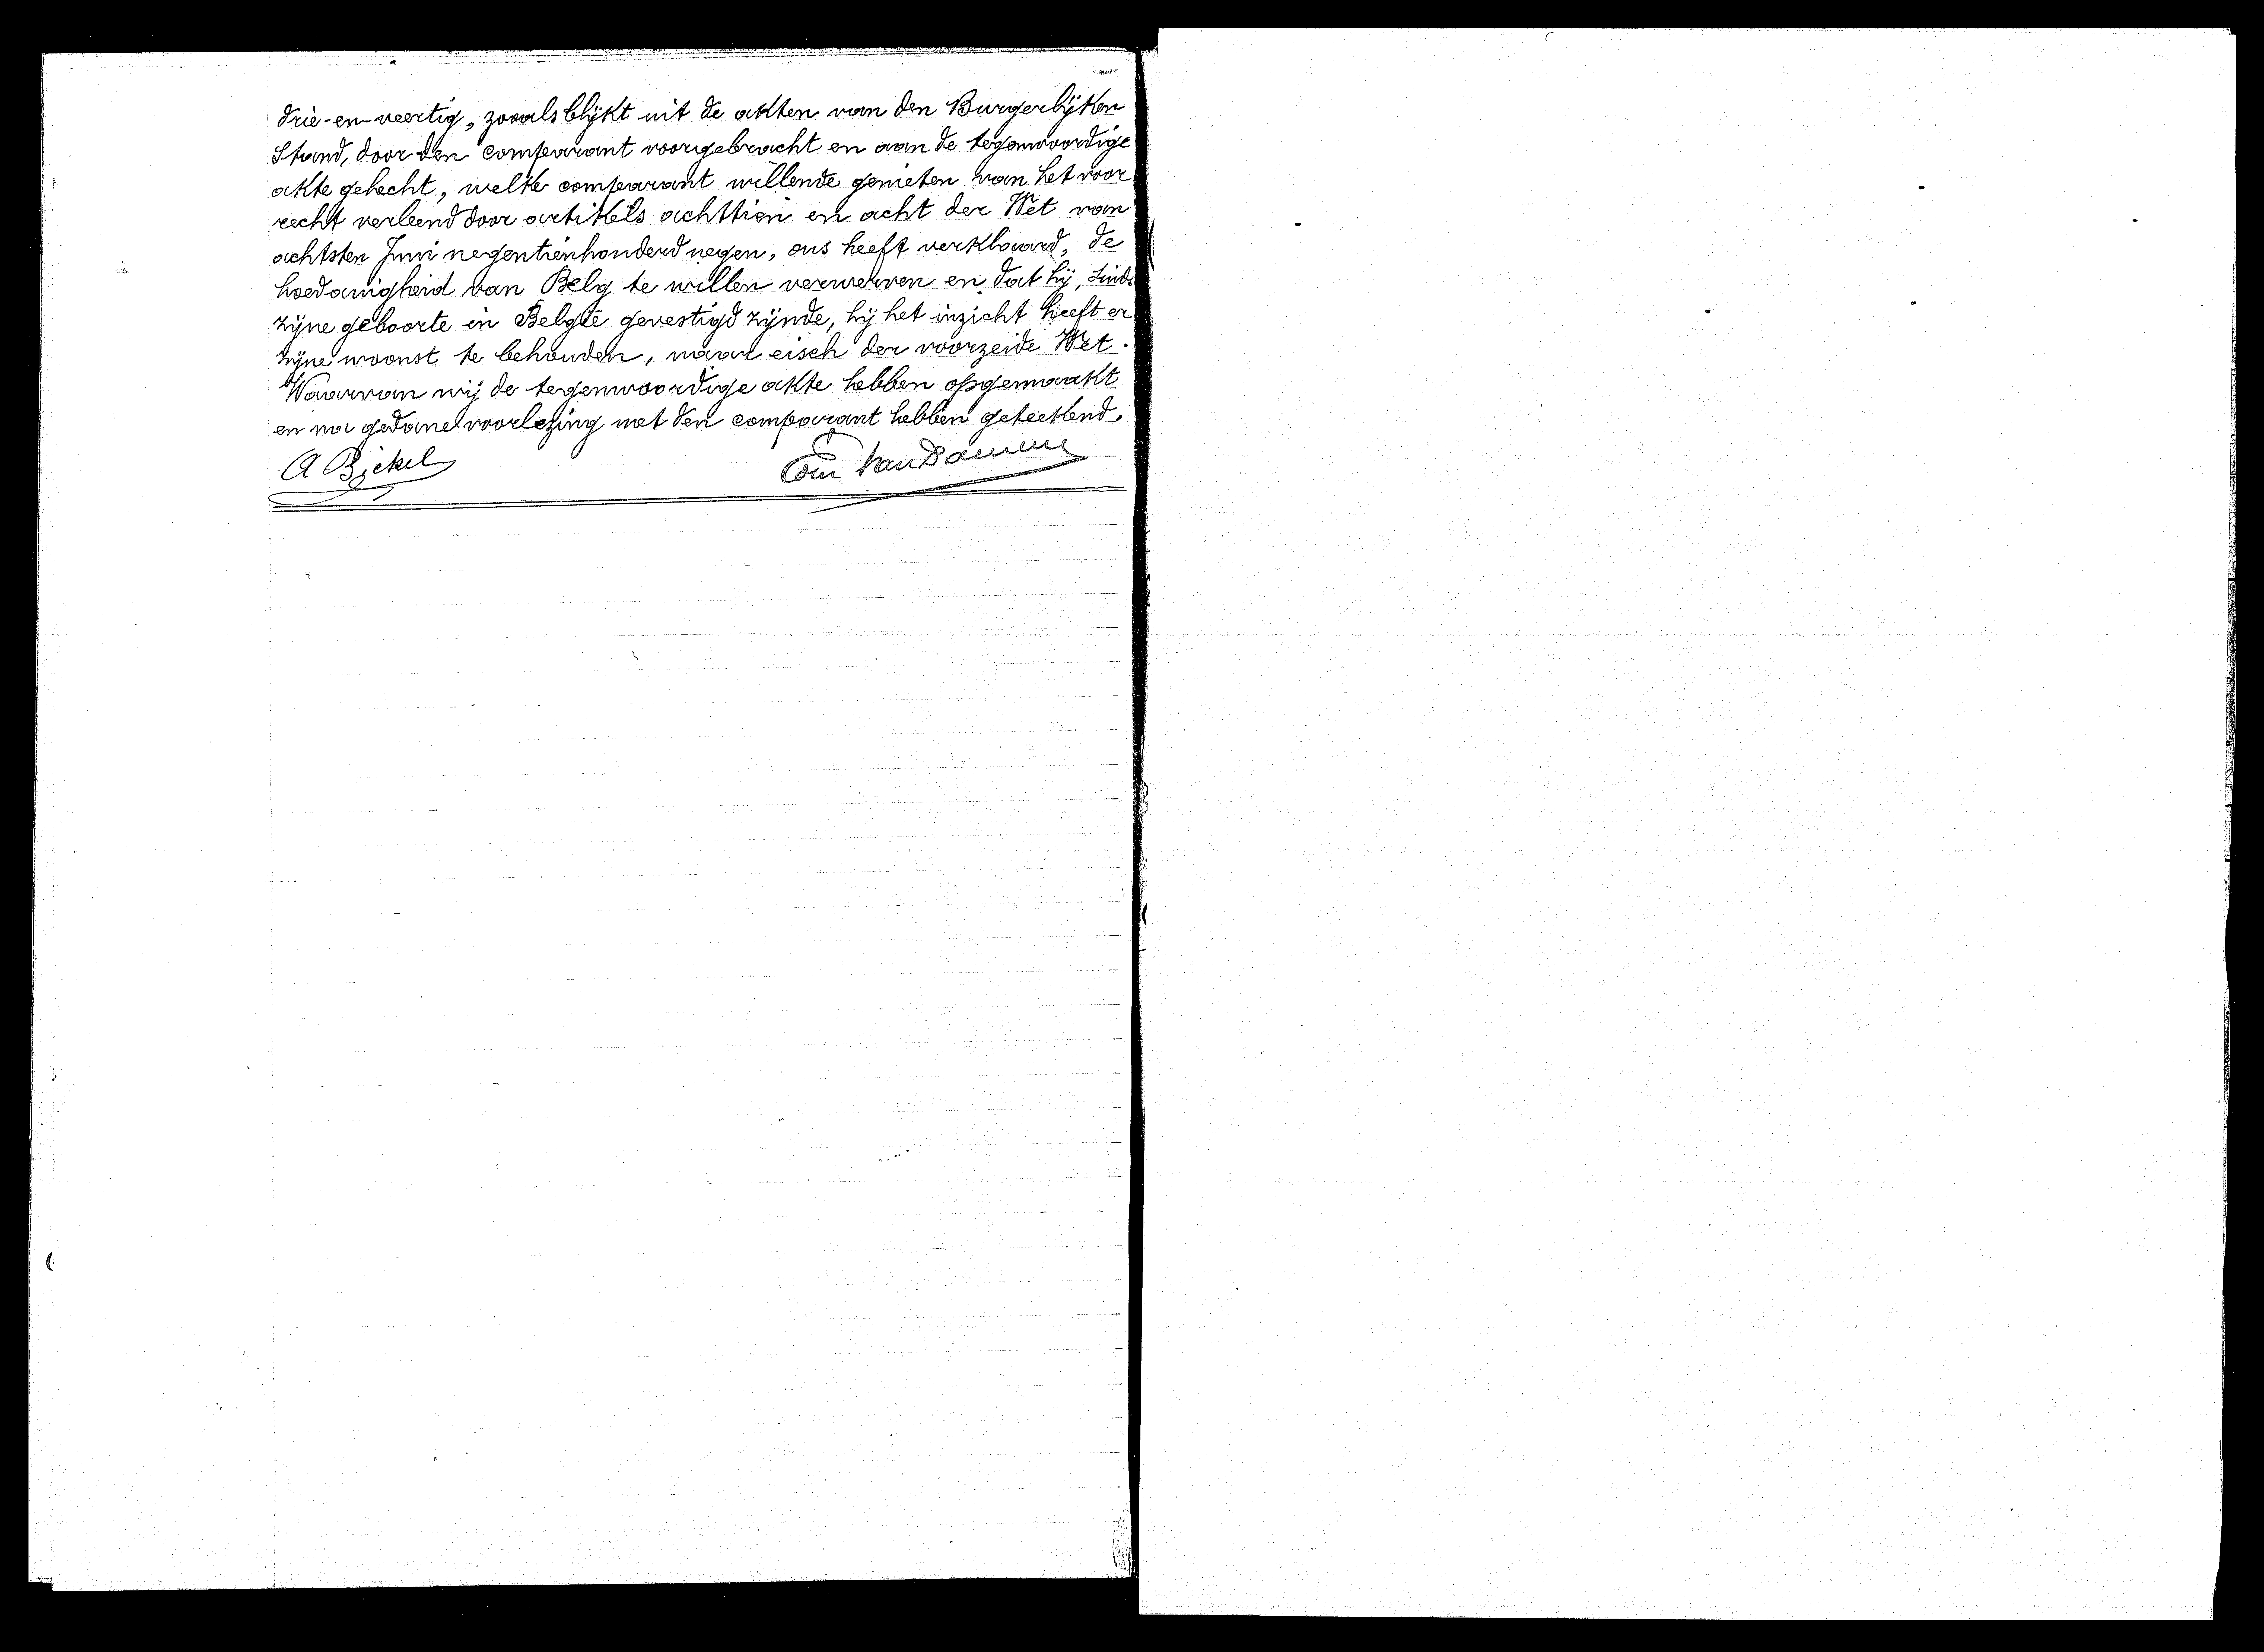 drie-en-veertig, zooals blijkt uit de akten van den Burgerlijken
Stand, door den comparant voorgebracht en aan de tegenwoordige
akte gehecht, welke comparant willende genieten van het voor
recht verleend door artikels achttien en acht der Wet van
achtsten Juni negentienhonderd negen, ons heeft verklaard, de
hoedanigheid van Belg te willen verwerven en dat hij, sinds
zijne geboorte in België gevestigd zijnde, hij het inzicht heeft er
zijne woonst te behouden, naar eisch der voorzeide Wet.
Waarvan wij de tegenwoordige akte hebben opgemaakt
en na gedane voorlezing met den comparant hebben geteekend.
A Bickel
Van Damme